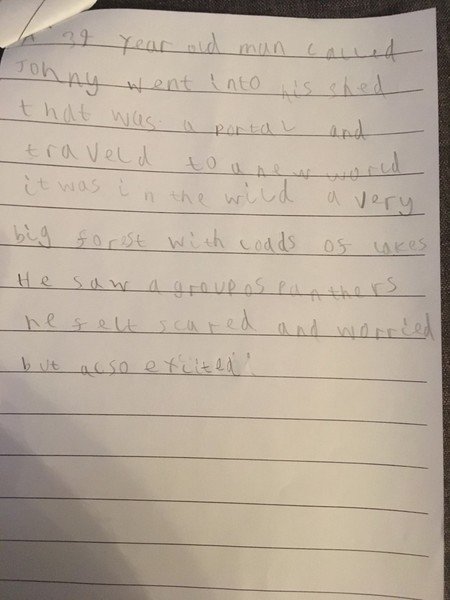 A 39 year old man called
Johny went into his shed
that was a portal and
traveld to a new world
it was in the wild a very
big forest with loads of lakes
He saw a group of Panthers
he felt scared and worried
but also exited!